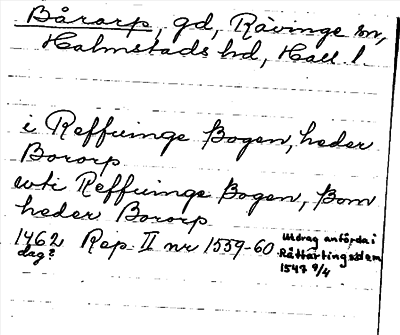 Bårarp, gd, Rävinge sn,
Halmstads hd, Hall. l.
i Reffuinge Bogen, heder
Bororp
uti Reffuinge Bogen, Bom
heder Bororp
1462 Rep. II nr 1559-60 Utdrag anförda i
dag? Råttartingsdom
1547 9/4